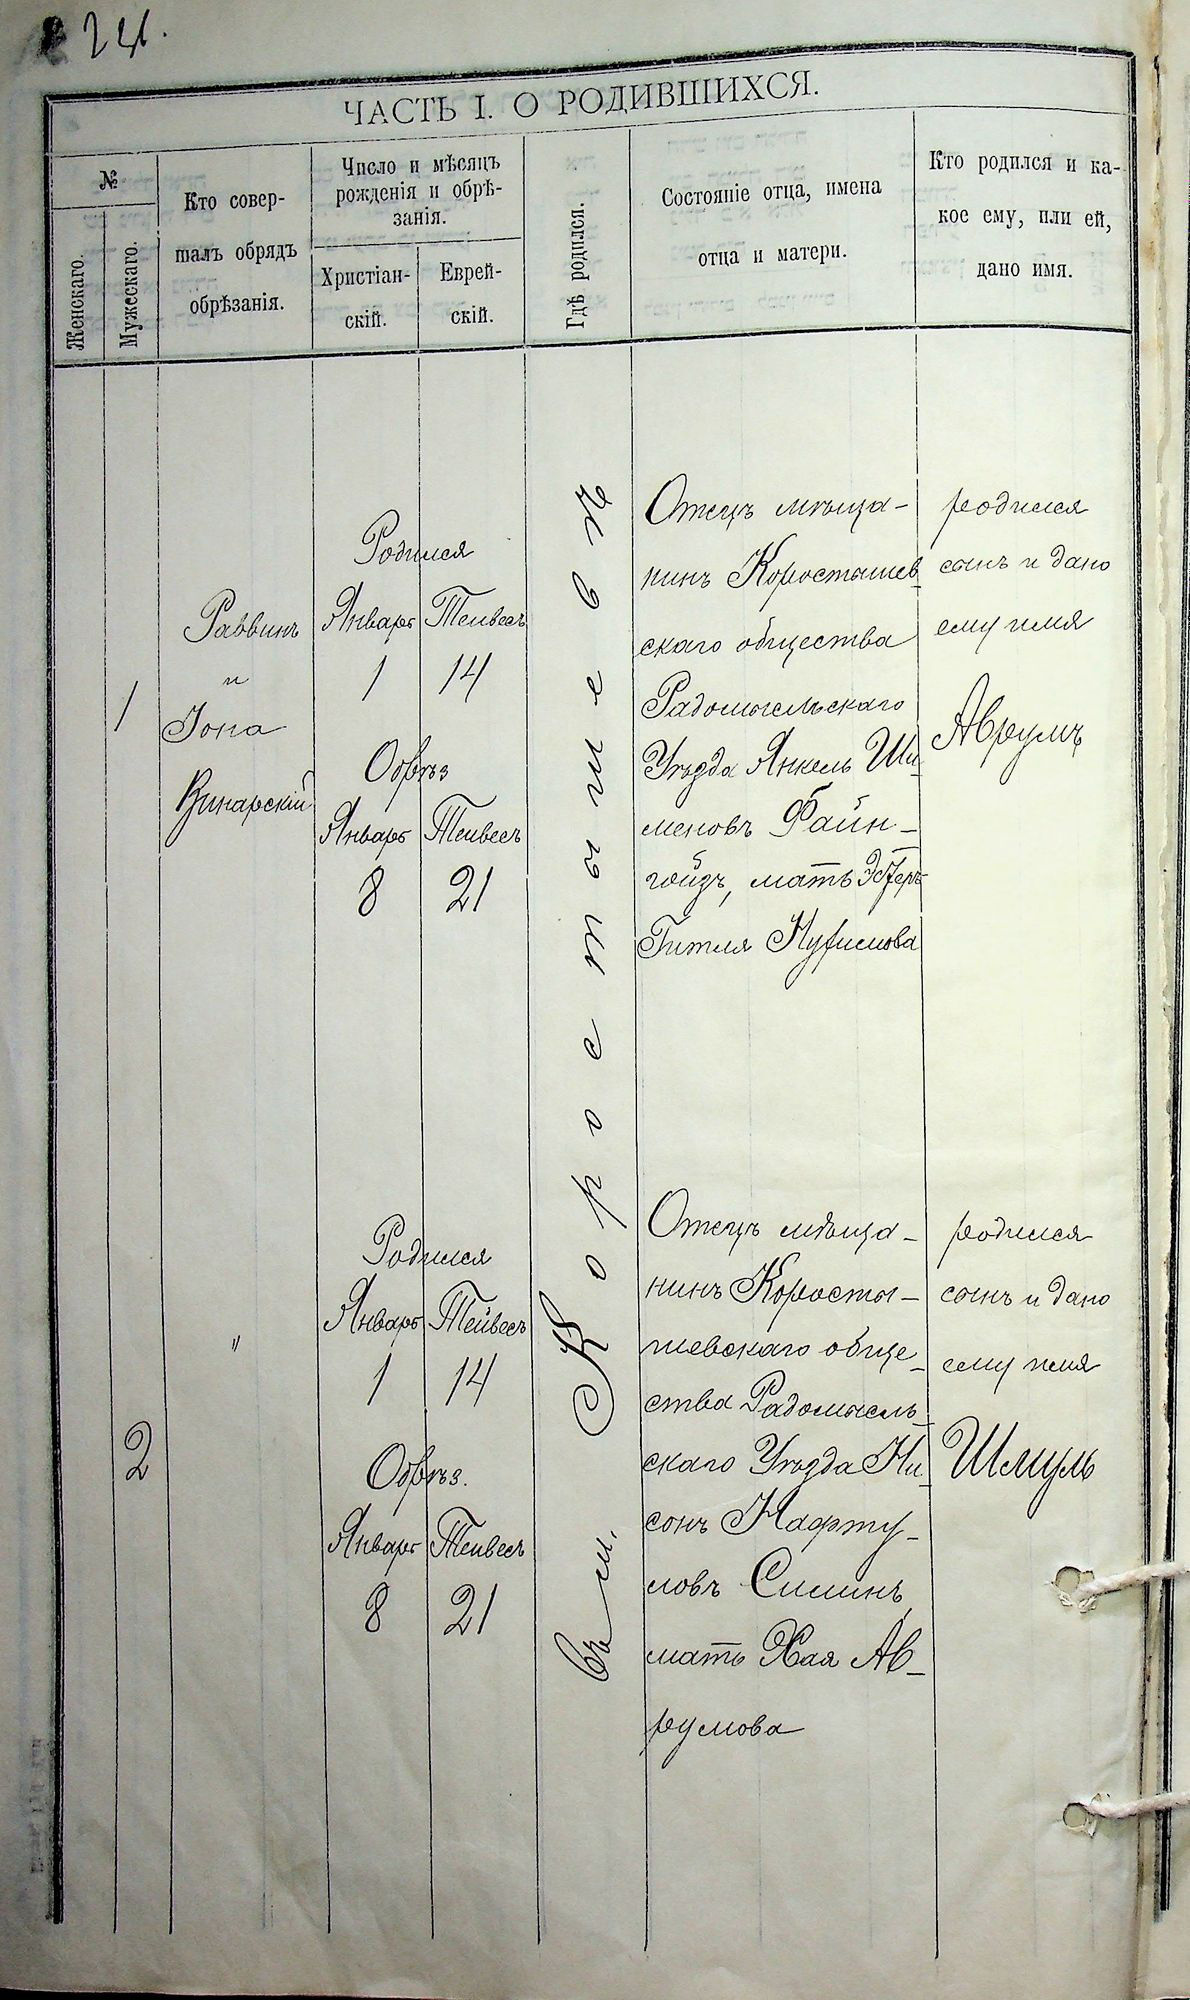 241.
ЧАСТЬ I. О РОДИВШИХСЯ.
№
Женскаго.
Мужескаго.
Кто совер-
шалъ обрядъ
обрѣзанія.
Число и мѣсяцъ
рожденія и обрѣ-
занія.
Христіан-
скій.
Еврей-
скій.
Гдѣ родился.
Состояніе отца, имена
отца и матери.
Кто родился и ка-
кое ему, или ей,
дано имя.
1
Раввинъ
и
Іона
Винарскій
Родился
Январь Тейвесъ
1 14
Обрѣз
Январь Тейвесъ
8 21
Въ м. Коростышевѣ
Отецъ мѣща-
нинъ Коростышев
скаго общества
Радомысльскаго
Уѣзда Янкель Ши-
меновъ Файн-
гойзъ, мать Эстеръ
Гитля Нухимова
родился
сынъ и дано
ему имя
Аврумъ
2
"
Родился
Январь Тейвесъ
1 14
Обрѣз.
Январь Тейвесъ
8 21
Отецъ мѣща-
нинъ Коросты-
шевскаго обще-
ства Радомысль-
скаго Уѣзда Ни-
сонъ Нафту-
ловъ Симинъ,
мать Хая Ав-
румова
родился
сынъ и дано
ему имя
Шмуль